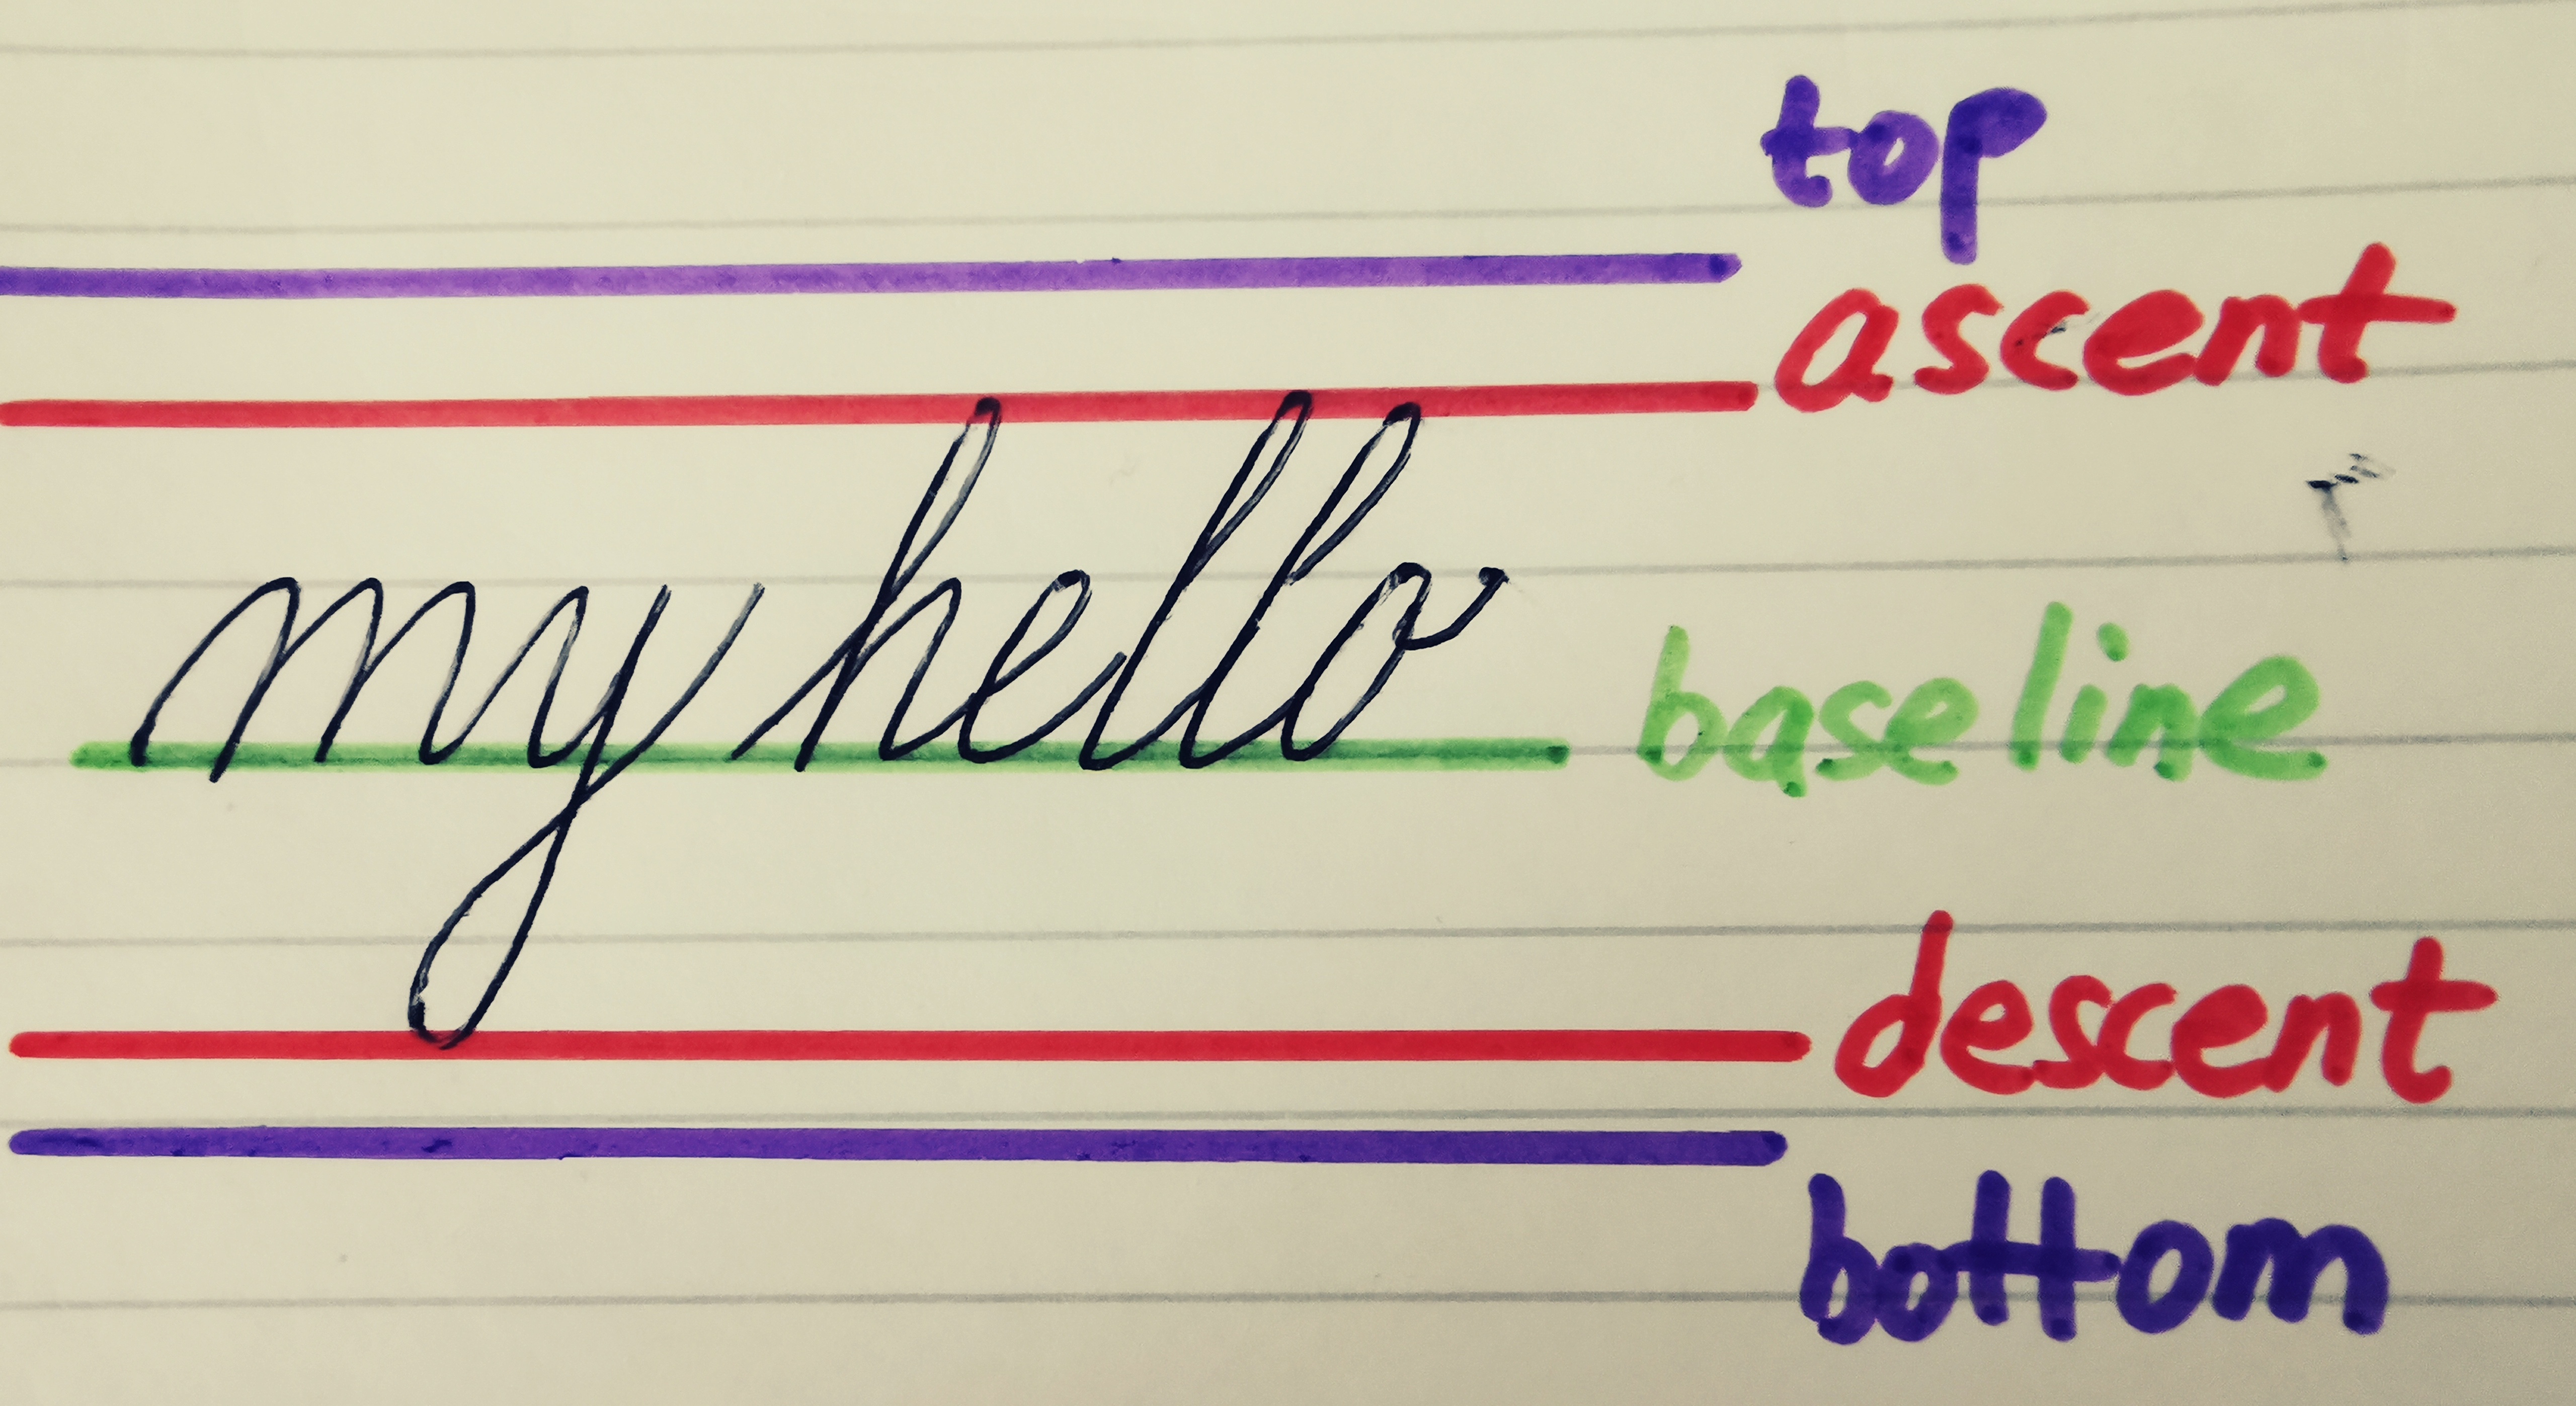 top
ascent
my hello
baseline
descent
bottom